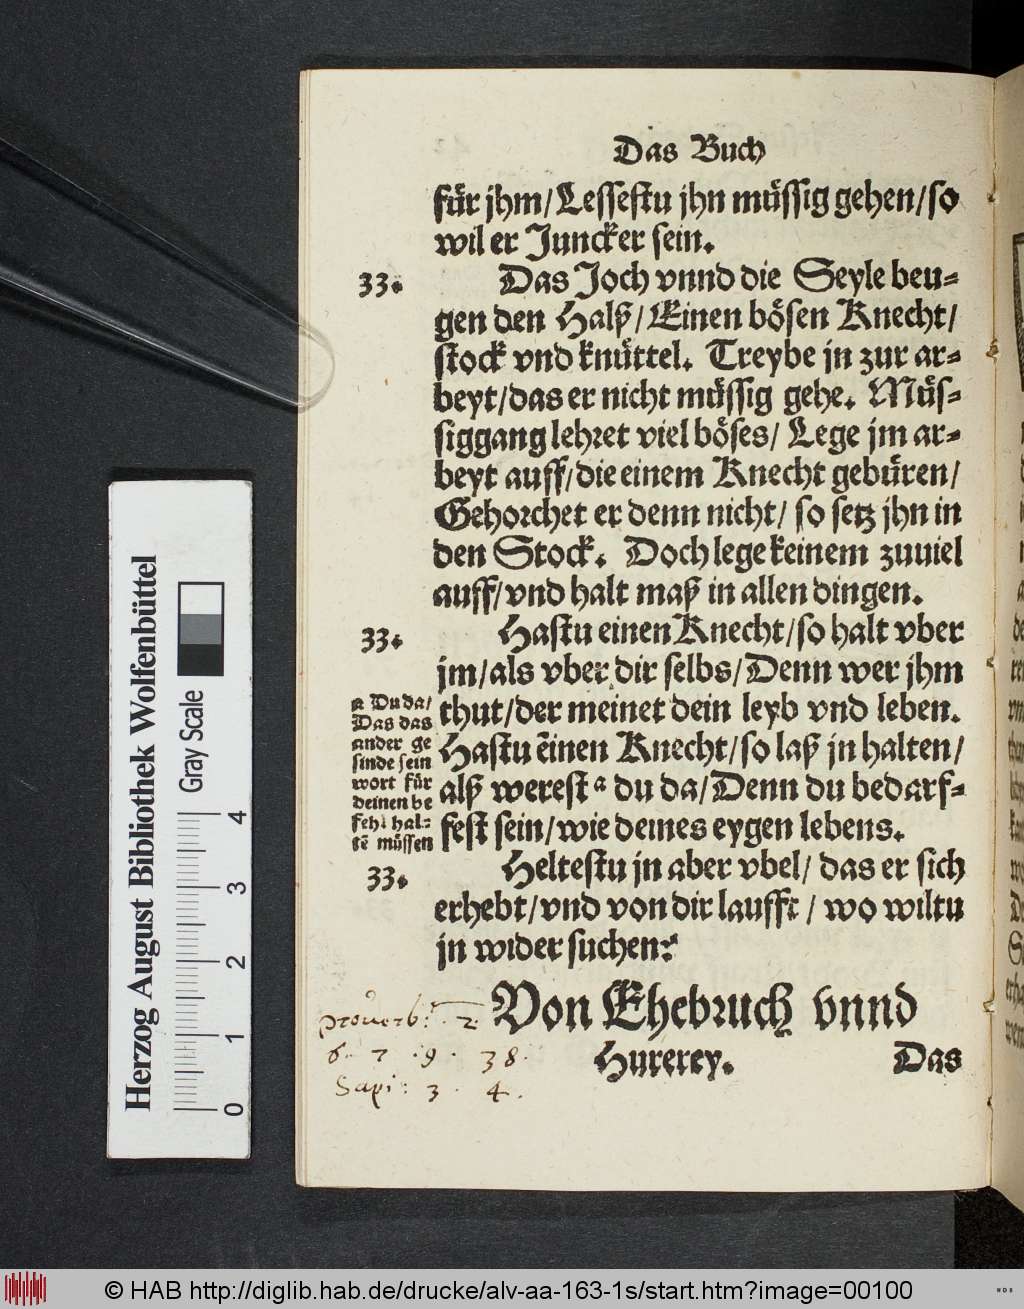 Das Buch
fuͤr jhm/ Lessestu jhn muͤssig gehen/ so
wil er Juncker sein.
33. Das Joch vnnd die Seyle beu-
gen den Halß/ Einen boͤsen Knecht/
stock vnd knuͤttel. Treybe jn zur ar-
beyt/ das er nicht muͤssig gehe. Muͤs-
siggang lehret viel boͤses/ Lege jm ar-
beyt auff/ die einem Knecht gebuͤren/
Gehorchet er denn nicht/ so setz jhn in
den Stock. Doch lege keinem zuuiel
auff/ vnd halt maß in allen dingen.
33. Hastu einen Knecht/ so halt vber
jm/ als vber dir selbs/ Denn wer jhm
thut/ der meinet dein leyb vnd leben.
Hastu einen Knecht/ so laß jn halten/
alß werest a du da/ Denn du bedarf-
fest sein/ wie deines eygen lebens.
a Du da/
Das das
ander ge
sinde sein
wort fuͤr
deinen be
fehl hal-
tẽ muͤssen
33. Heltestu jn aber vbel/ das er sich
erhebt/ vnd von dir laufft/ wo wiltu
jn wider suchen?
Von Ehebruch vnnd
Hurerey.
Das
Prouerb: 2.
6. 7. 9. 38.
Sapi: 3. 4.
Herzog August Bibliothek Wolfenbüttel
Gray Scale
0 1 2 3 4
© HAB http://diglib.hab.de/drucke/alv-aa-163-1s/start.htm?image=00100